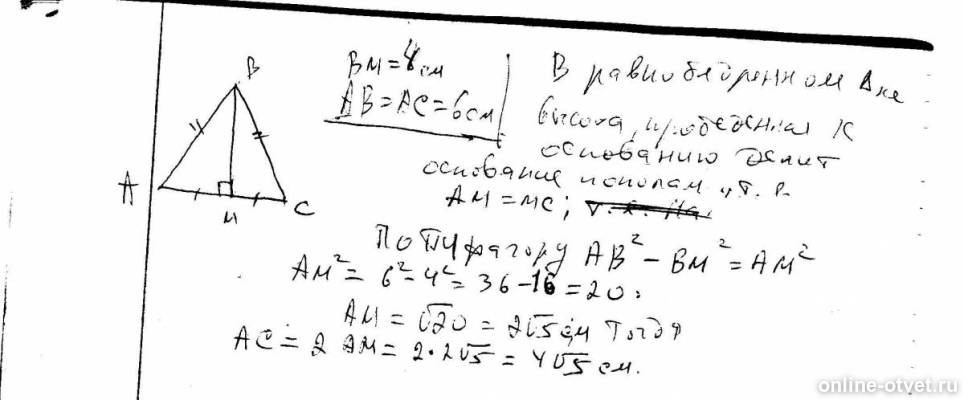 B
A
M
C
BM=4см
AB=AC=6см
В равнобедренном Δ-ке
высота, проведенная к
основанию делит
основание пополам, т. е.
AM=MC;
По Пифагору AB²-BM²=AM²
AM²=6²-4²=36-16=20;
AM=√20=2√5см тогда
AC=2AM=2•2√5=4√5см.
online-otvet.ru